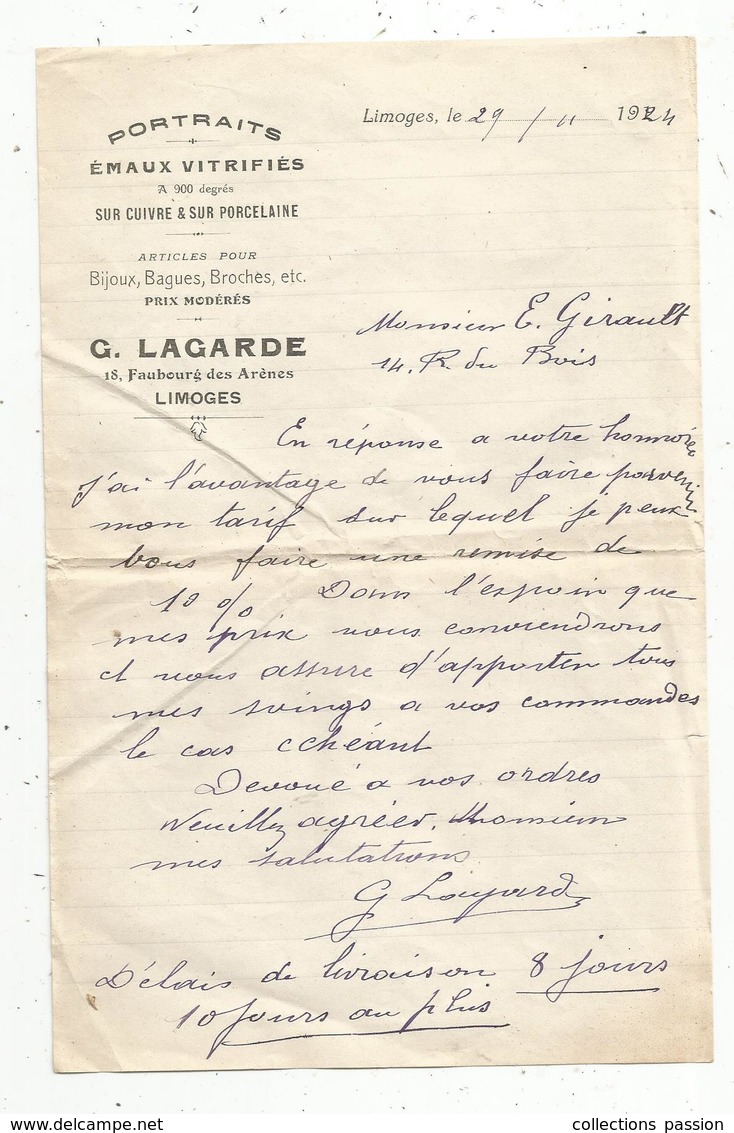 PORTRAITS
ÉMAUX VITRIFIÉS
A 900 degrés
SUR CUIVRE & SUR PORCELAINE
ARTICLES POUR
Bijoux, Bagues, Broches, etc.
PRIX MODÉRÉS
G. LAGARDE
18, Faubourg des Arènes
LIMOGES
Limoges, le 29 / 11 1924
Monsieur E. Girault
14, R. du Bois
En réponse a votre honnorée
J'ai l'avantage de vous faire parvenir
mon tarif sur lequel je peux
vous faire une remise de
10 % Dans l'espoir que
mes prix vous conviendrons
et vous assure d'apporter tous
mes soings a vos commandes
le cas échéant
Devoué a vos ordres
Veuillez agréer, Monsieur
mes salutations
G Lagarde
Délais de livraison 8 jours
10 jours au plus
collections passion